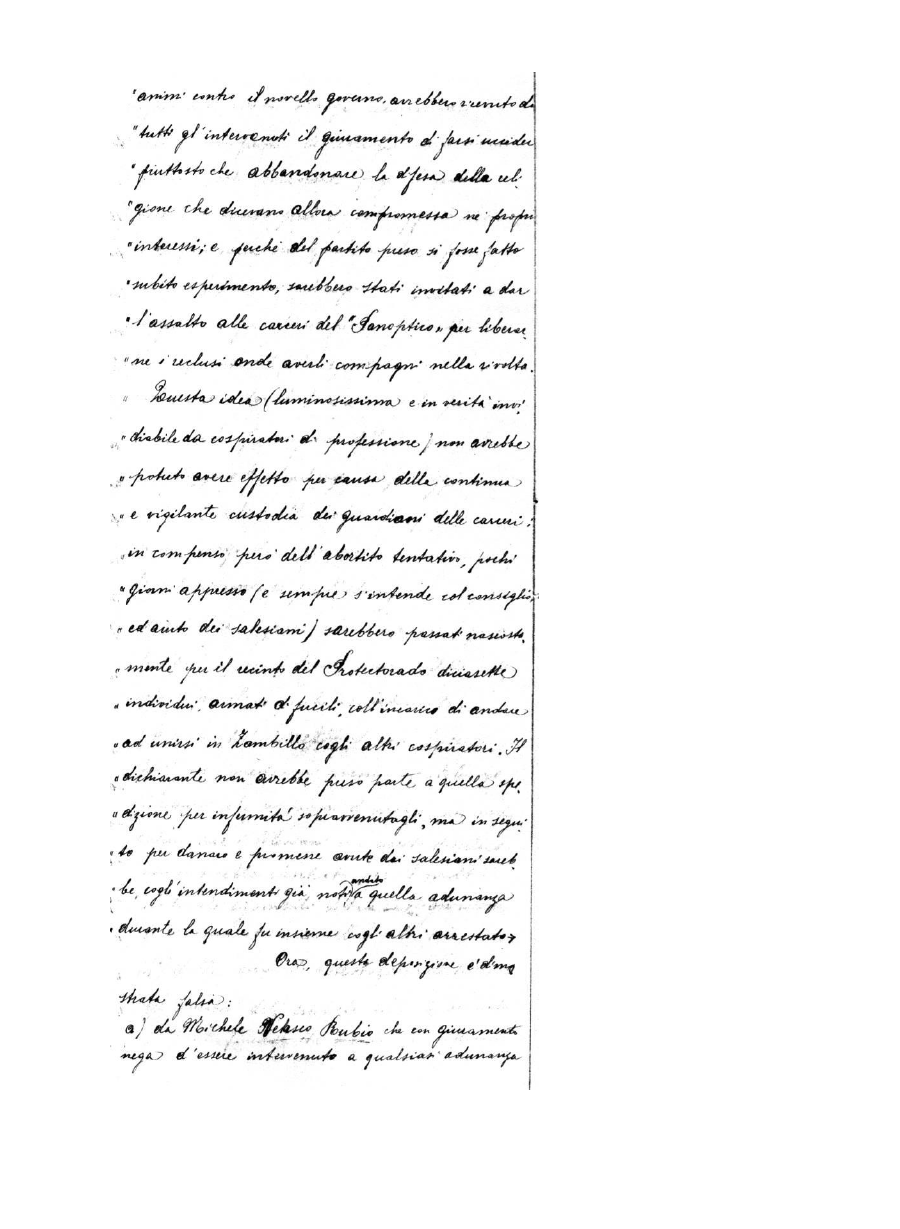 "animi contro il novello governo, avrebbero ricevuto da
"tutti gl'intervenuti il giuramento di farsi uccider
"piuttosto che abbandonare la difesa della reli-
"gione che dicevano allora compromessa ne' propri
"interessi; e perché del partito preso si fosse fatto
"subito esperimento, sarebbero stati invitati a dar
"l'assalto alle carceri del "Panoptico" per liberar
"ne i reclusi onde averli compagni nella rivolta.
" Questa idea (luminosissima e in verità invi-
"diabile da cospiratori di professione) non avrebbe
"potuto avere effetto per causa della continua
"e vigilante custodia dei guardiani delle carceri:
"in compenso però dell'abortito tentativo, pochi
"giorni appresso (e sempre s'intende col consiglio
"ed aiuto dei salesiani) sarebbero passati nascosta-
"mente per il recinto del Protectorado diciasette
"individui, armati di fucili, coll'incarico di andare
"ad unirsi in Zambillo cogli altri cospiratori. Il
"dichiarante non avrebbe preso parte a quella spe-
"dizione per infermità sopravvenutagli, ma in segui-
"to per danaro e promesse avute dai salesiani sareb-
"be, cogl'intendimenti già noti, andato a quella adunanza
"durante la quale fu insieme cogli altri arrestato"
Ora, questa deposizione è dimo
strata falsa:
a) da Michele Velasco Rubio che con giuramento
nega d'essere intervenuto a qualsiasi adunanza